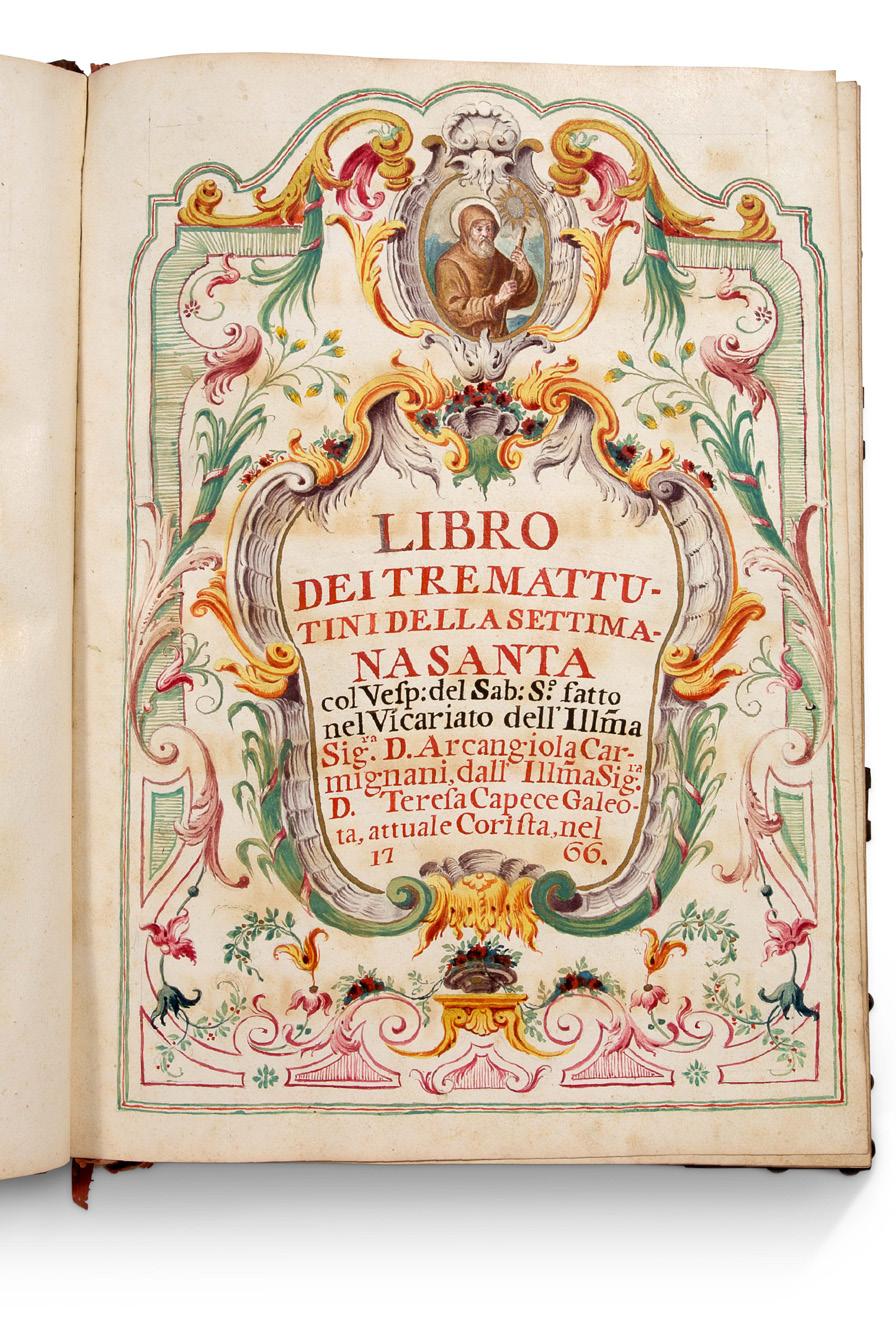 LIBRO
DEI TRE MATTU-
TINI DELLA SETTIMA-
NA SANTA
col Veſp: del Sab: S.º fatto
nel Vicariato dell' Illm̃a
Sig.ʳᵃ D. Arcangiola Car-
mignani, dall' Illm̃a Sig.ʳᵃ
D. Tereſa Capece Galeo-
ta, attuale Coriſta, nel
17 66.